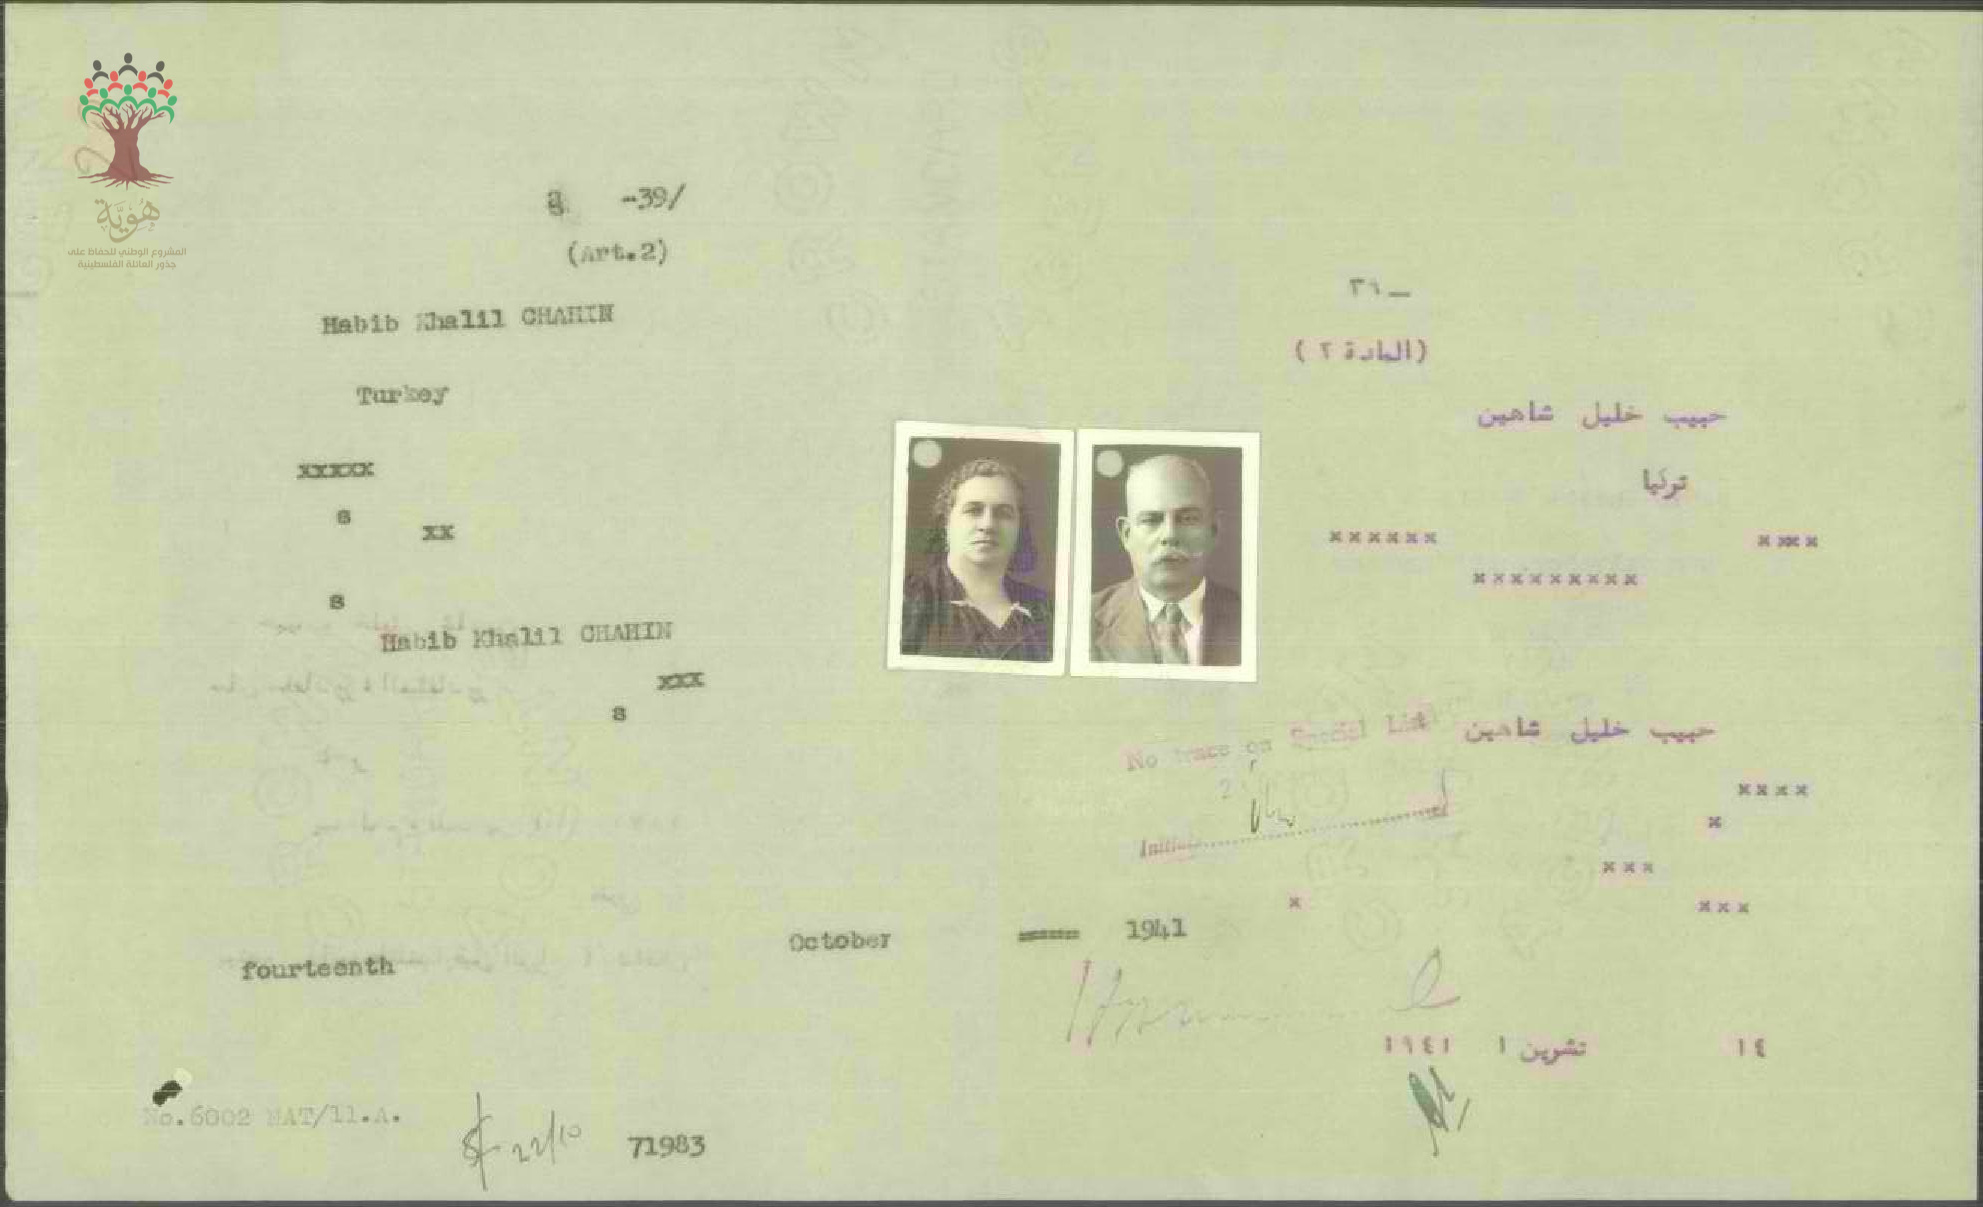 هُوِيَّة
المشروع الوطني للحفاظ على
جذور العائلة الفلسطينية
-39/
(Art.2)
Habib Khalil CHAHIN
Turkey
xxxxx
s
xx
s
Habib Khalil CHAHIN
xxx
s
fourteenth October ===== 1941
No.6002 NAT/11.A.
22/10 71983
٣٩ــ
(المادة ٢)
حبيب خليل شاهين
تركيا
xxxx xxxxxx
xxxxxxxxx
حبيب خليل شاهين
No trace on Special List
xxxx
x
Initial
xxx
xxx x
١٤ تشرين ١ ١٩٤١